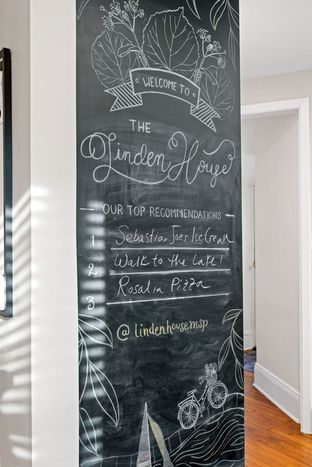 WELCOME TO
THE
Linden House
OUR TOP RECOMMENDATIONS
1 Sebastian Joes Ice Cream
2 Walk to the Lake!
3 Rosalia Pizza
@lindenhousemsp